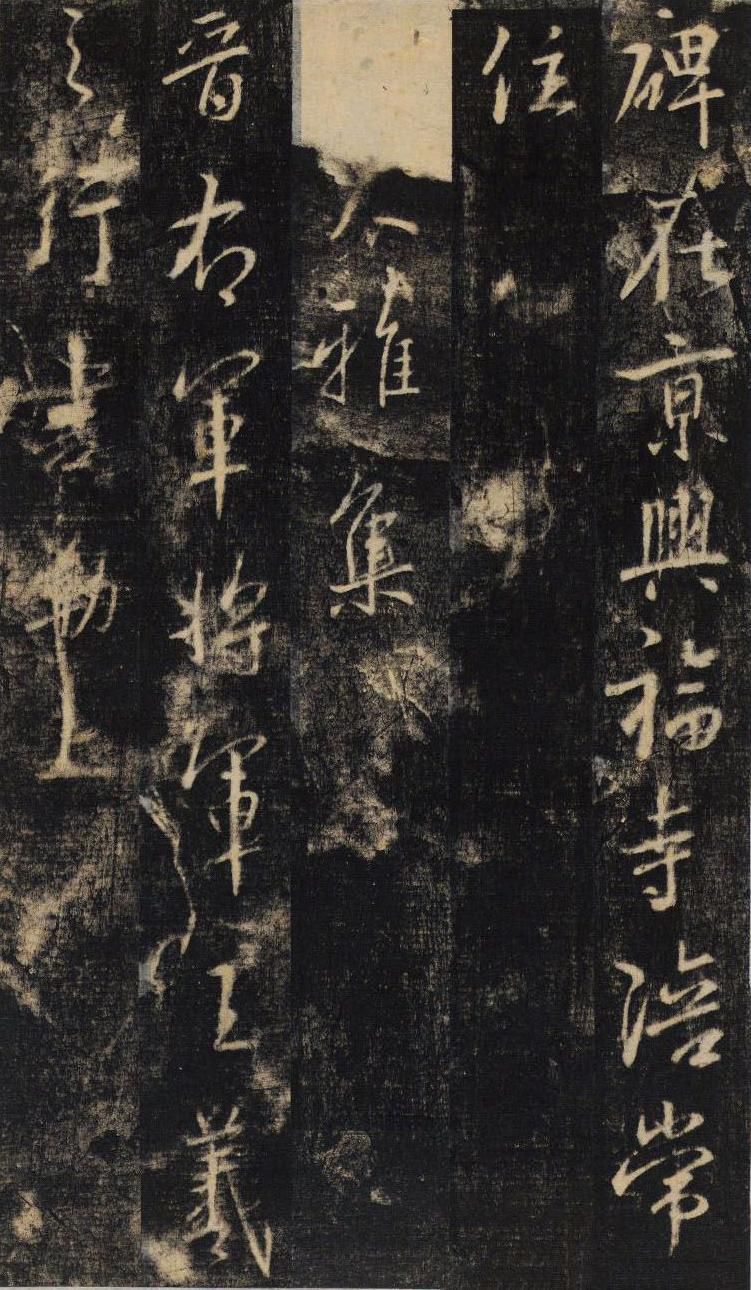 碑在京興福寺陪常
住
大雅集
晋右軍將軍王羲
之行書勒上